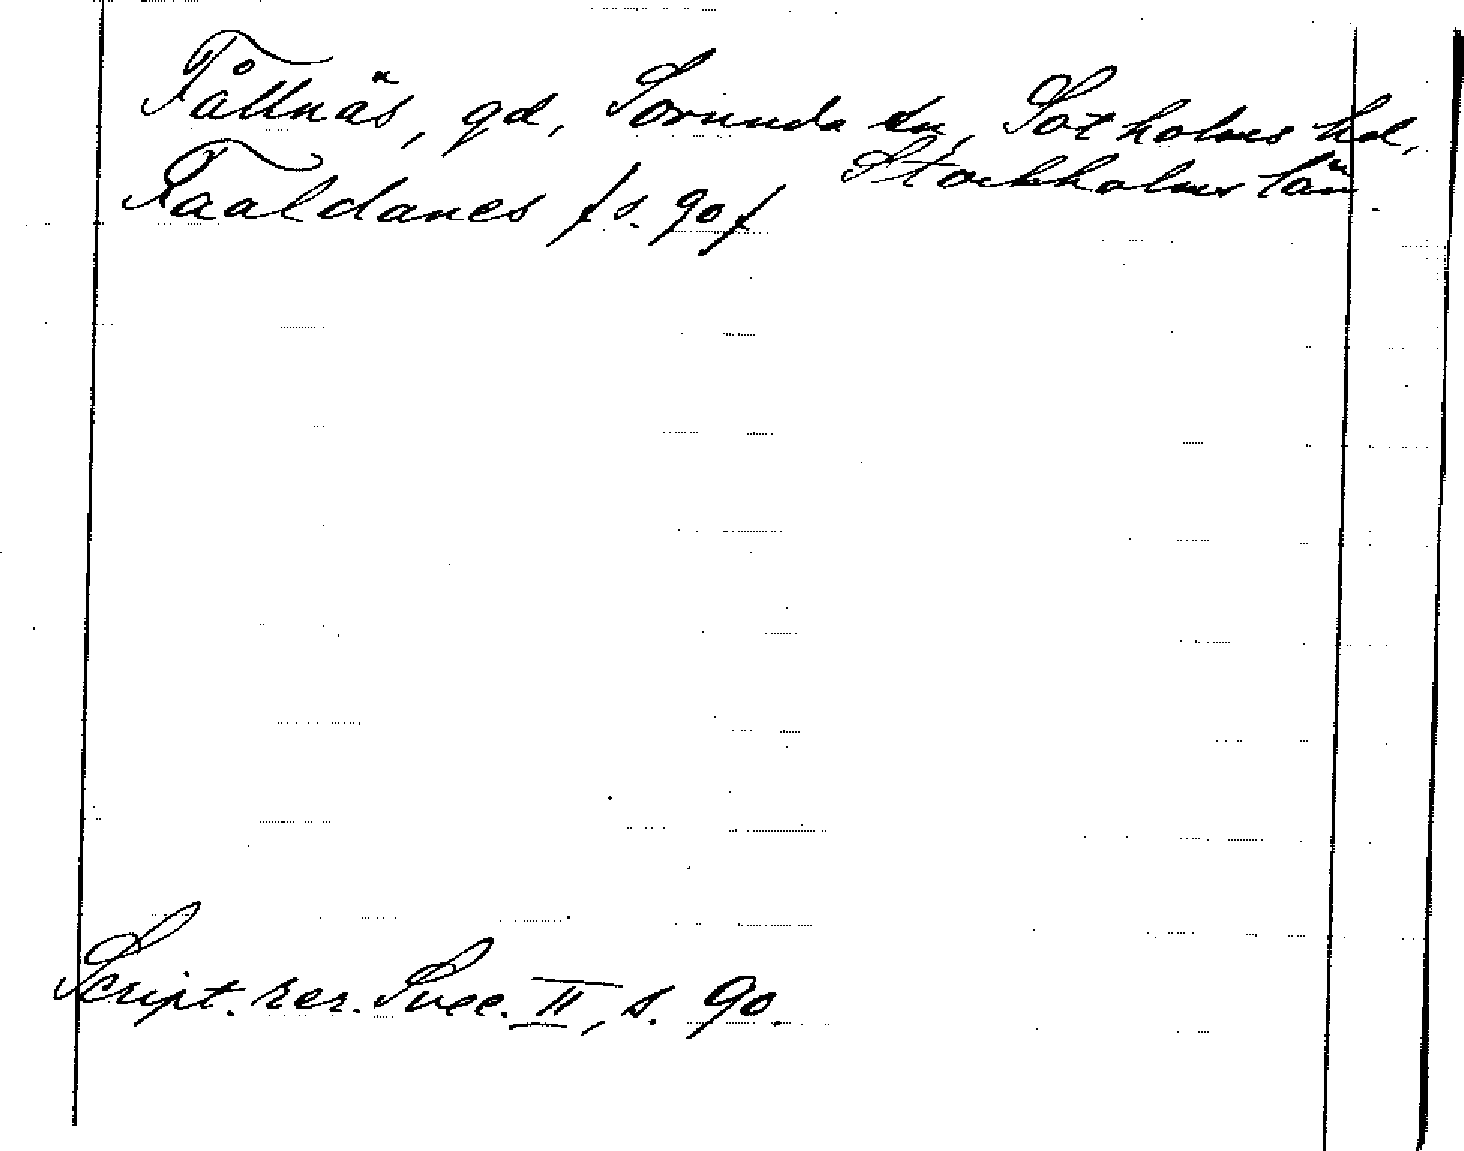 Fållnäs, gd, Sorunda sn, Sotholms hd,
Stockholms län
Faaldanes /s. 90/
Script. rer. Svec. II, s. 90.